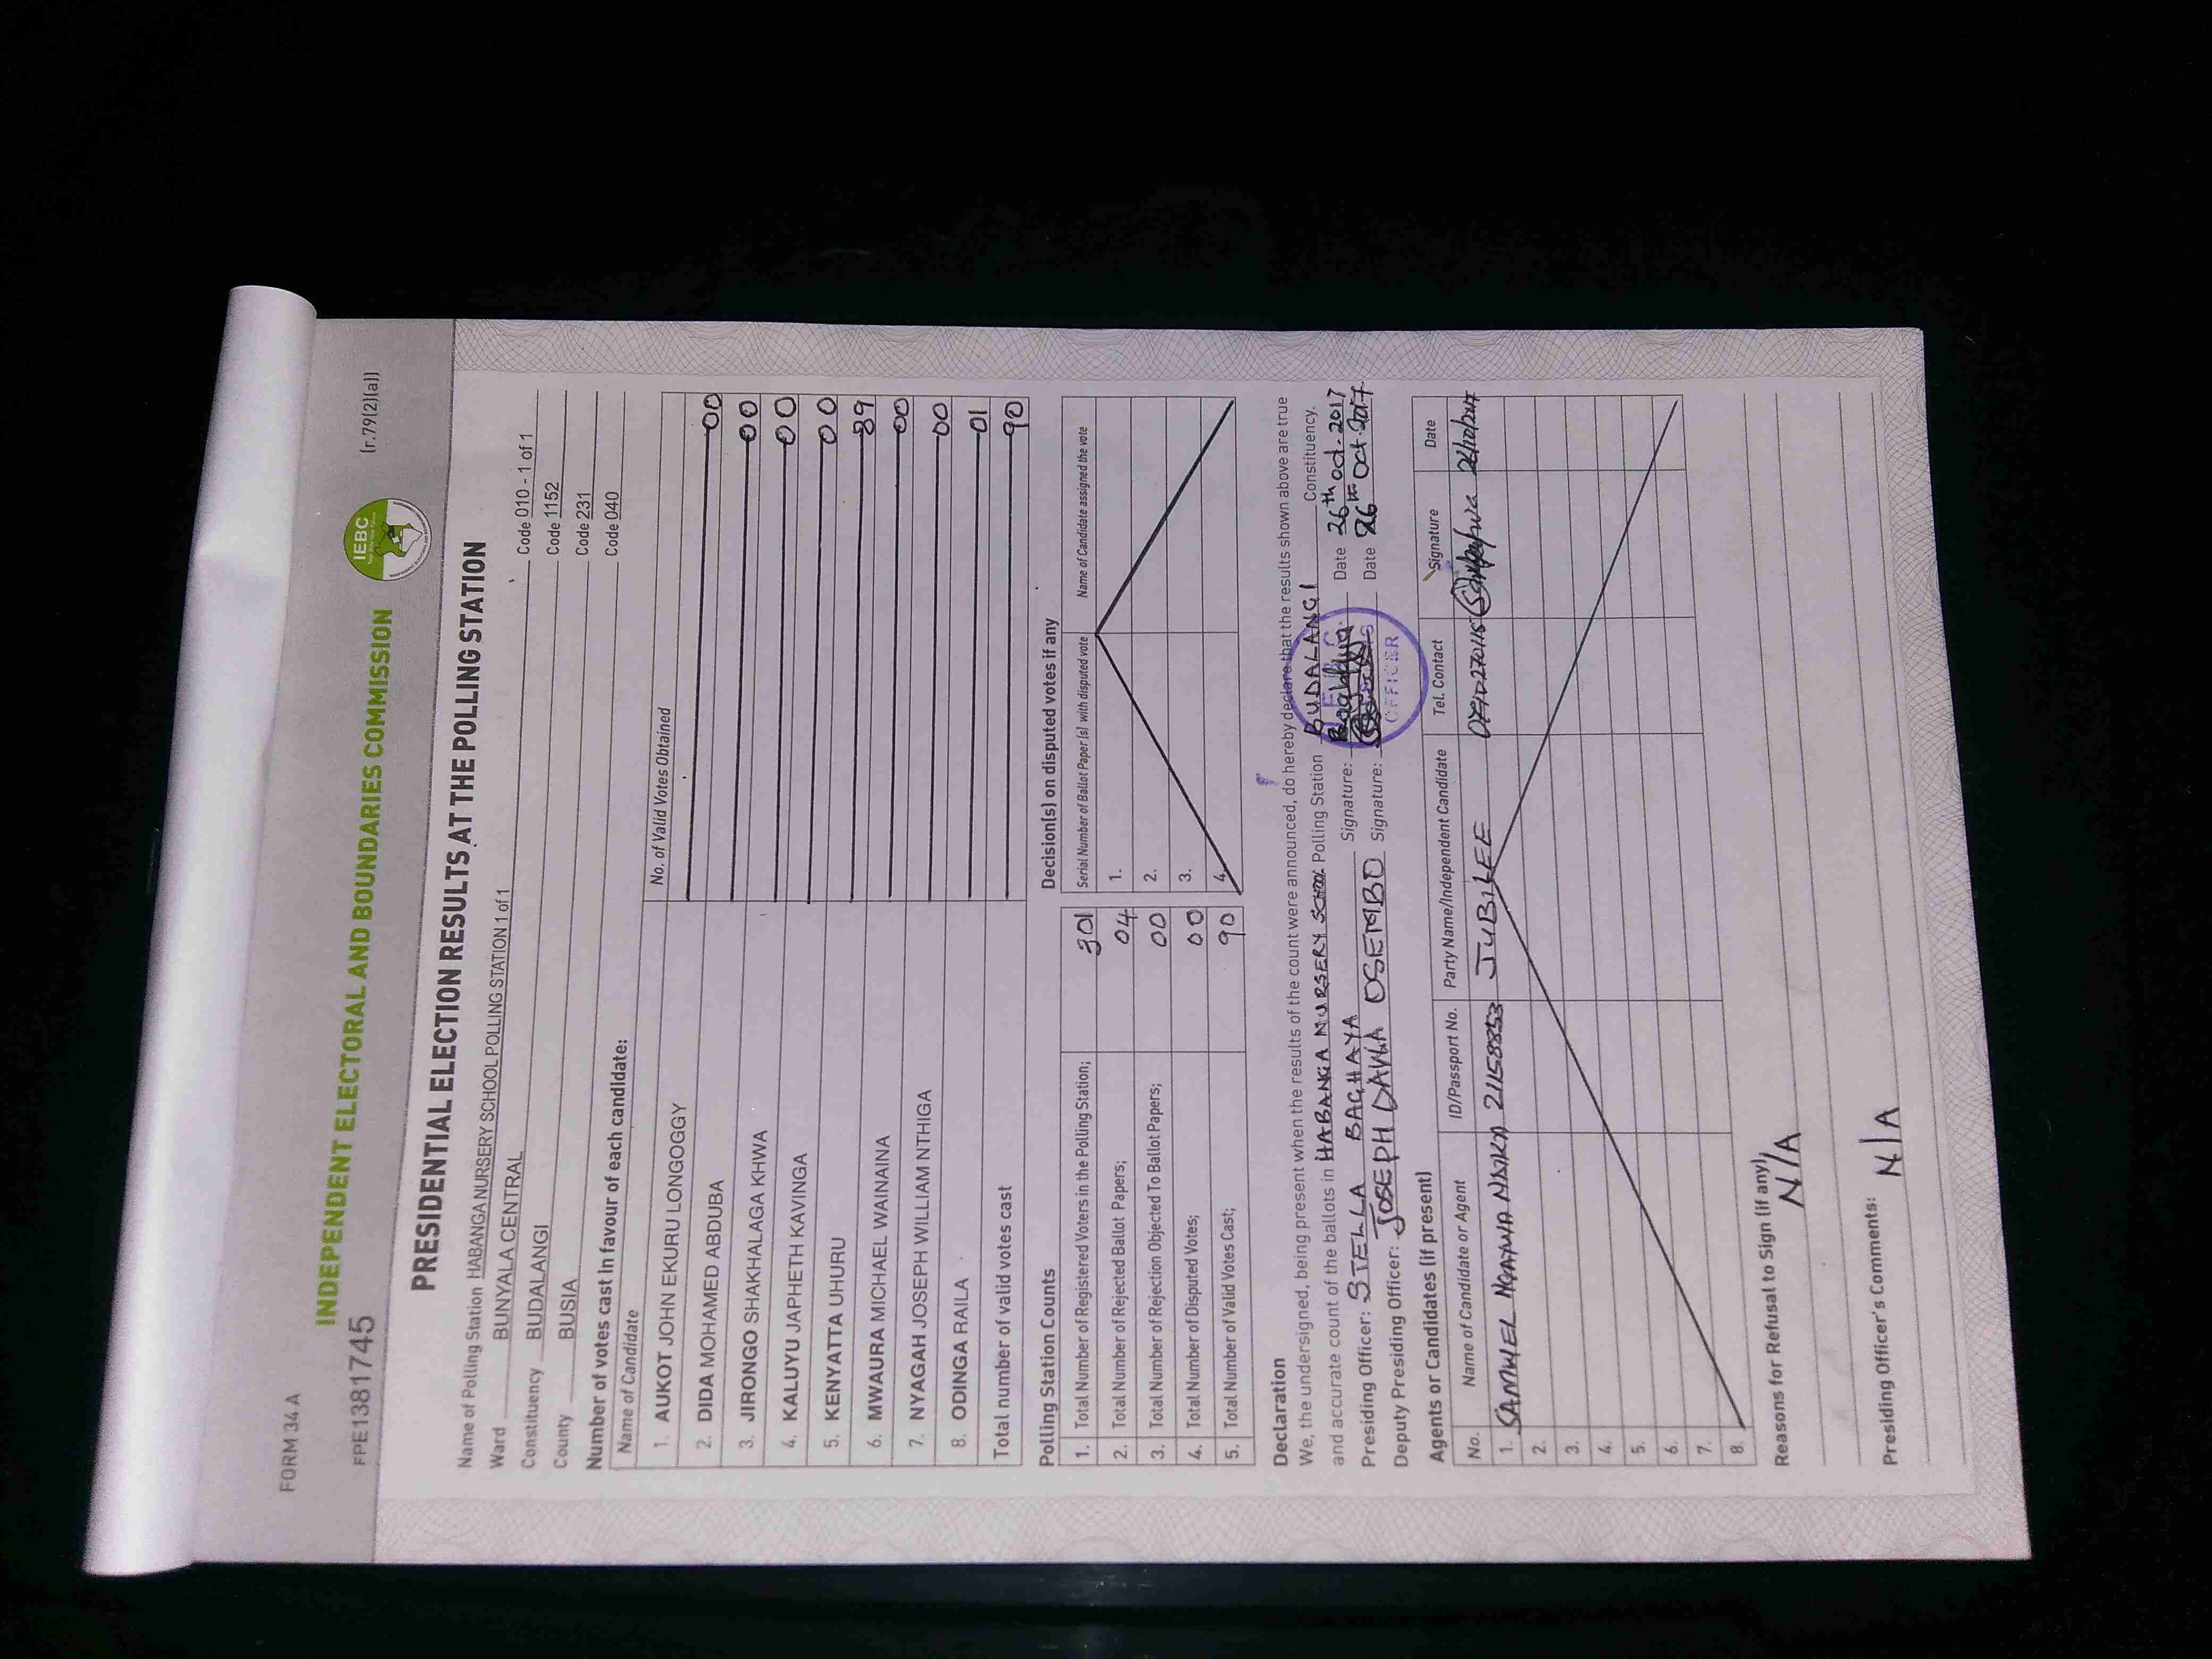 FORM 34 A
INDEPENDENT ELECTORAL AND BOUNDARIES COMMISSION
IEBC
FPE1381745
(r.79(2)(a))
PRESIDENTIAL ELECTION RESULTS AT THE POLLING STATION
Name of Polling Station HABANGA NURSERY SCHOOL POLLING STATION 1 of 1 Code 010 - 1 of 1
Ward BUNYALA CENTRAL Code 1152
Constituency BUDALANGI Code 231
County BUSIA Code 040
Number of votes cast in favour of each candidate:
Name of Candidate No. of Valid Votes Obtained
1. AUKOT JOHN EKURU LONGOGGY 00
2. DIDA MOHAMED ABDUBA 00
3. JIRONGO SHAKHALAGA KHWA 00
4. KALUYU JAPHETH KAVINGA 00
5. KENYATTA UHURU 89
6. MWAURA MICHAEL WAINAINA 00
7. NYAGAH JOSEPH WILLIAM NTHIGA 00
8. ODINGA RAILA 01
Total number of valid votes cast 90
Polling Station Counts
1. Total Number of Registered Voters in the Polling Station; 301
2. Total Number of Rejected Ballot Papers; 04
3. Total Number of Rejection Objected To Ballot Papers; 00
4. Total Number of Disputed Votes; 00
5. Total Number of Valid Votes Cast; 90
Decision(s) on disputed votes if any
Serial Number of Ballot Paper (s) with disputed vote Name of Candidate assigned the vote
1.
2.
3.
4.
Declaration
We, the undersigned, being present when the results of the count were announced, do hereby declare that the results shown above are true
and accurate count of the ballots in HABANGA NURSERY SCHOOL Polling Station BUDALANGI Constituency.
Presiding Officer: STELLA BAGHAYA Signature: Date 26th Oct-2017
Deputy Presiding Officer: JOSEPH DAWA OSEMBO Signature: Date 26th Oct-2017
OFFICER
Agents or Candidates (if present)
No. Name of Candidate or Agent ID/Passport No. Party Name/Independent Candidate Tel. Contact Signature Date
1. SAMUEL 21158853 JUBILEE 26/10/2017
2.
3.
4.
5.
6.
7.
8.
Reasons for Refusal to Sign (if any);
N/A
Presiding Officer's Comments:
N/A